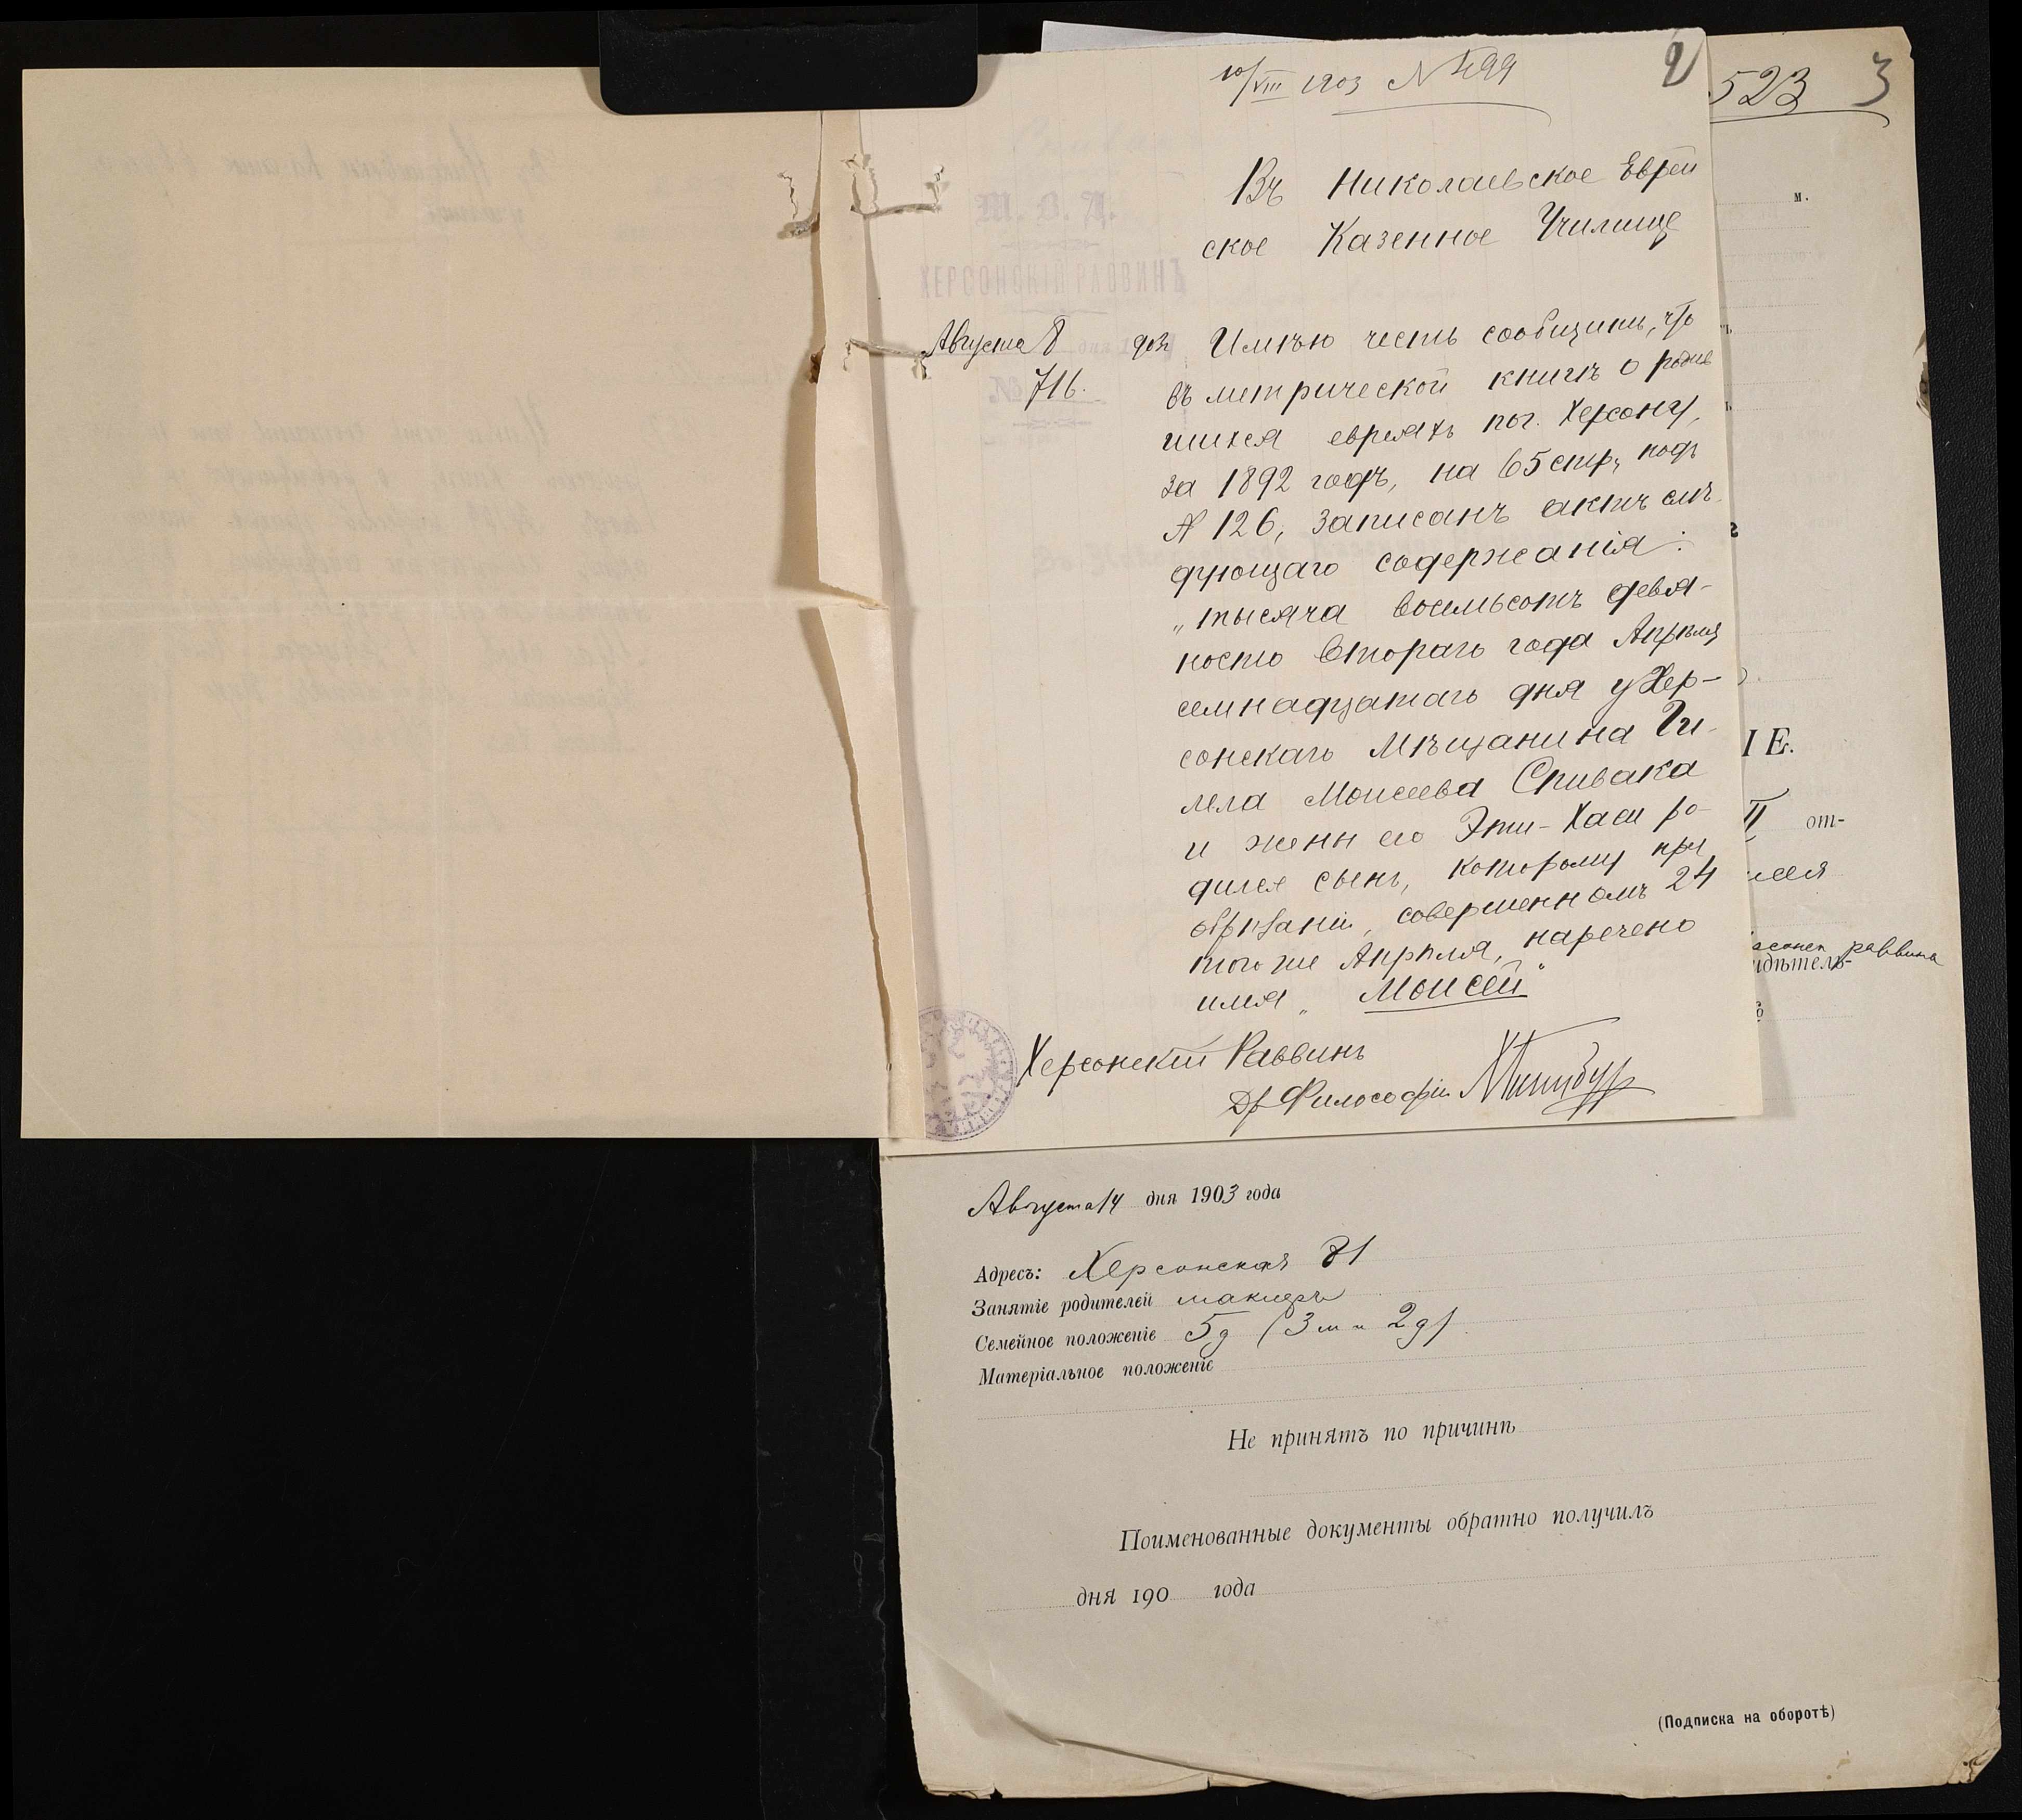 10/VIII 1903 № 499
2
523
3
Въ Николаевское Еврей
ское Казенное Училище
М. В. Д.
ХЕРСОНСКІЙ РАВВИНЪ
Августа 8 дня
№ 716.
Имѣю честь сообщить, что
въ метрической книгѣ о родив
шихся евреяхъ по г. Херсону,
за 1892 годъ, на 65 стр, подъ
№ 126, записанъ актъ слѣ
дующаго содержанія:
„тысяча восемьсотъ девя-
носто втораго года Апрѣля
семнадцатаго дня у Хер-
сонскаго Мѣщанина Ги-
леля Моисеева Спивака
и жены его Эти-Хаси ро-
дился сынъ, которому при
обрѣзаніи, совершенномъ 24
того же Апрѣля, наречено
имя „Моисей"
Херсонскій Раввинъ
Др Философіи
м.
ІЕ.
II от-
раввина
идѣтель-
Августа 14 дня 1903 года
Адресъ: Херсонская 81
Занятіе родителей маклеръ
Семейное положеніе 5 д (3 м и 2 д)
Матеріальное положеніе
Не принятъ по причинѣ
Поименованные документы обратно получилъ
дня 190 года
(Подписка на оборотѣ)